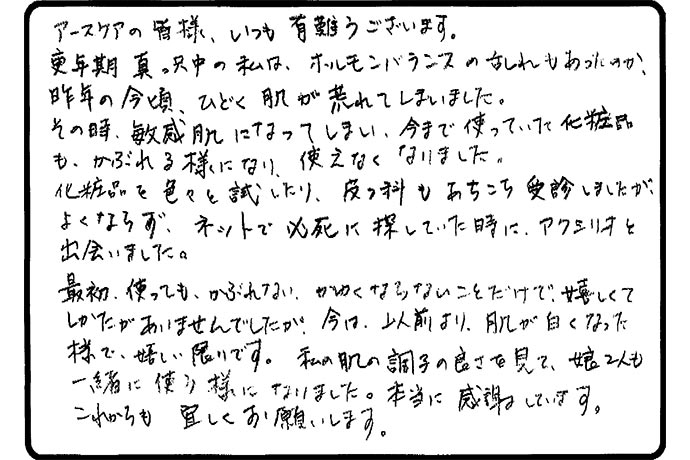 アースケアの皆様、いつも有難うございます。
更年期真っ只中の私は、ホルモンバランスの乱れもあったのか、
昨年の今頃、ひどく肌が荒れてしまいました。
その時、敏感肌になってしまい、今まで使っていた化粧品
も、かぶれる様になり、使えなくなりました。
化粧品を色々と試したり、皮フ科もあちこち受診しましたが、
よくならず、ネットで必死に探していた時に、アクシリオと
出会いました。
最初、使っても、かぶれない、かゆくならないことだけで、嬉しくて
しかたがありませんでしたが、今は、以前より、肌が白くなった
様で、嬉しい限りです。私の肌の調子の良さを見て、娘2人も
一緒に使う様になりました。本当に感謝しています。
これからも宜しくお願いします。